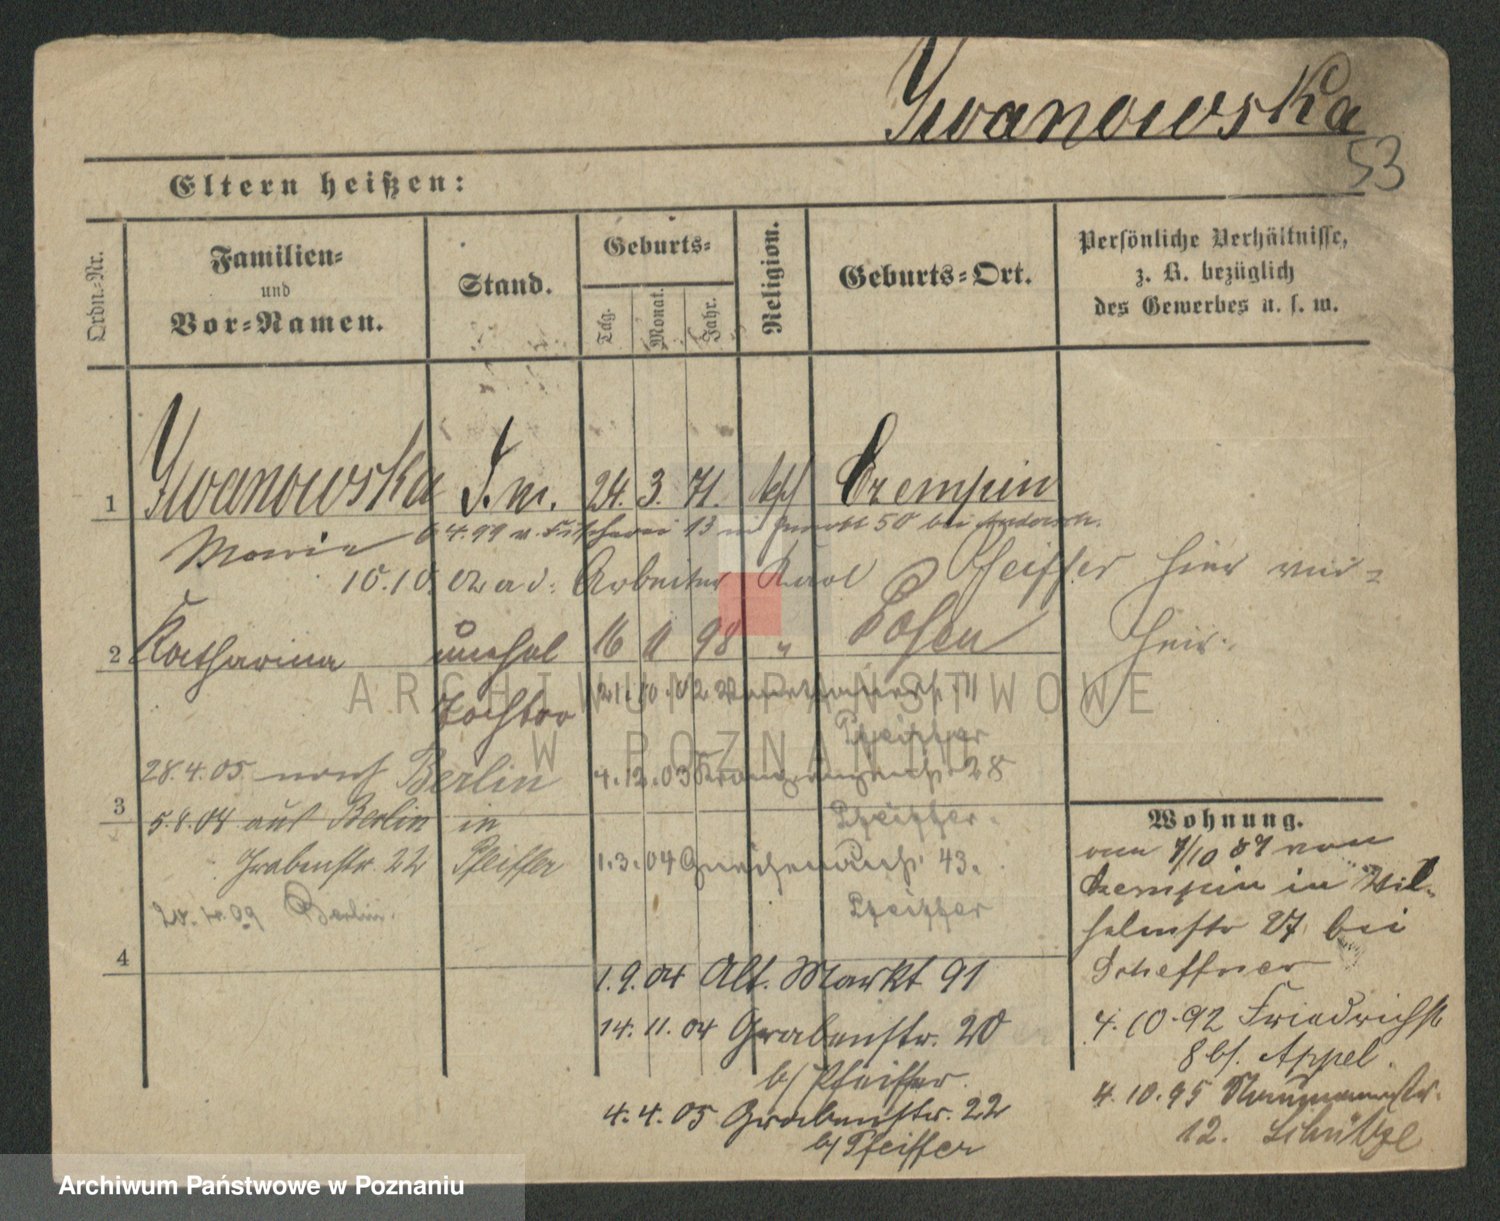 Iwanowska
53
Eltern heißen:
Ordn.-Nr.
Familien-
und
Vor-Namen.
Stand.
Geburts-
Tag.
Monat.
Jahr.
Religion.
Geburts-Ort.
Persönliche Verhältnisse,
z. B. bezüglich
des Gewerbes u. s. w.
1 Iwanowska 24. 3. 71. Czempin
Marie 6.4.99 v. 13 50 bei
10.10. Arbeiter Karl Pfeiffer hier
2 Katharina unehel 16 11 98 " Posen
Tochter 21.10.02 11
Pfeiffer
28.4.05 nach Berlin 4.12.03 28
3 5.8.08 aus Berlin in Pfeiffer.
Grabenstr. 22 Pfeiffer 1.3.04 43.
09 Berlin. Pfeiffer
4
1.9.04 Alt. Markt 91
14.11.04 Grabenstr. 20
b/ Pfeiffer
4.4.05 Grabenstr. 22
b/ Pfeiffer
Wohnung.
7/10 87 von
Czempin in Wil-
helmstr 27 bei
Scheffner
4.10.92 Friedrichstr
8 b/. Appel.
4.10.95 Naumannstr.
12. Schütze
ARCHIWUM PAŃSTWOWE
W POZNANIU
Archiwum Państwowe w Poznaniu